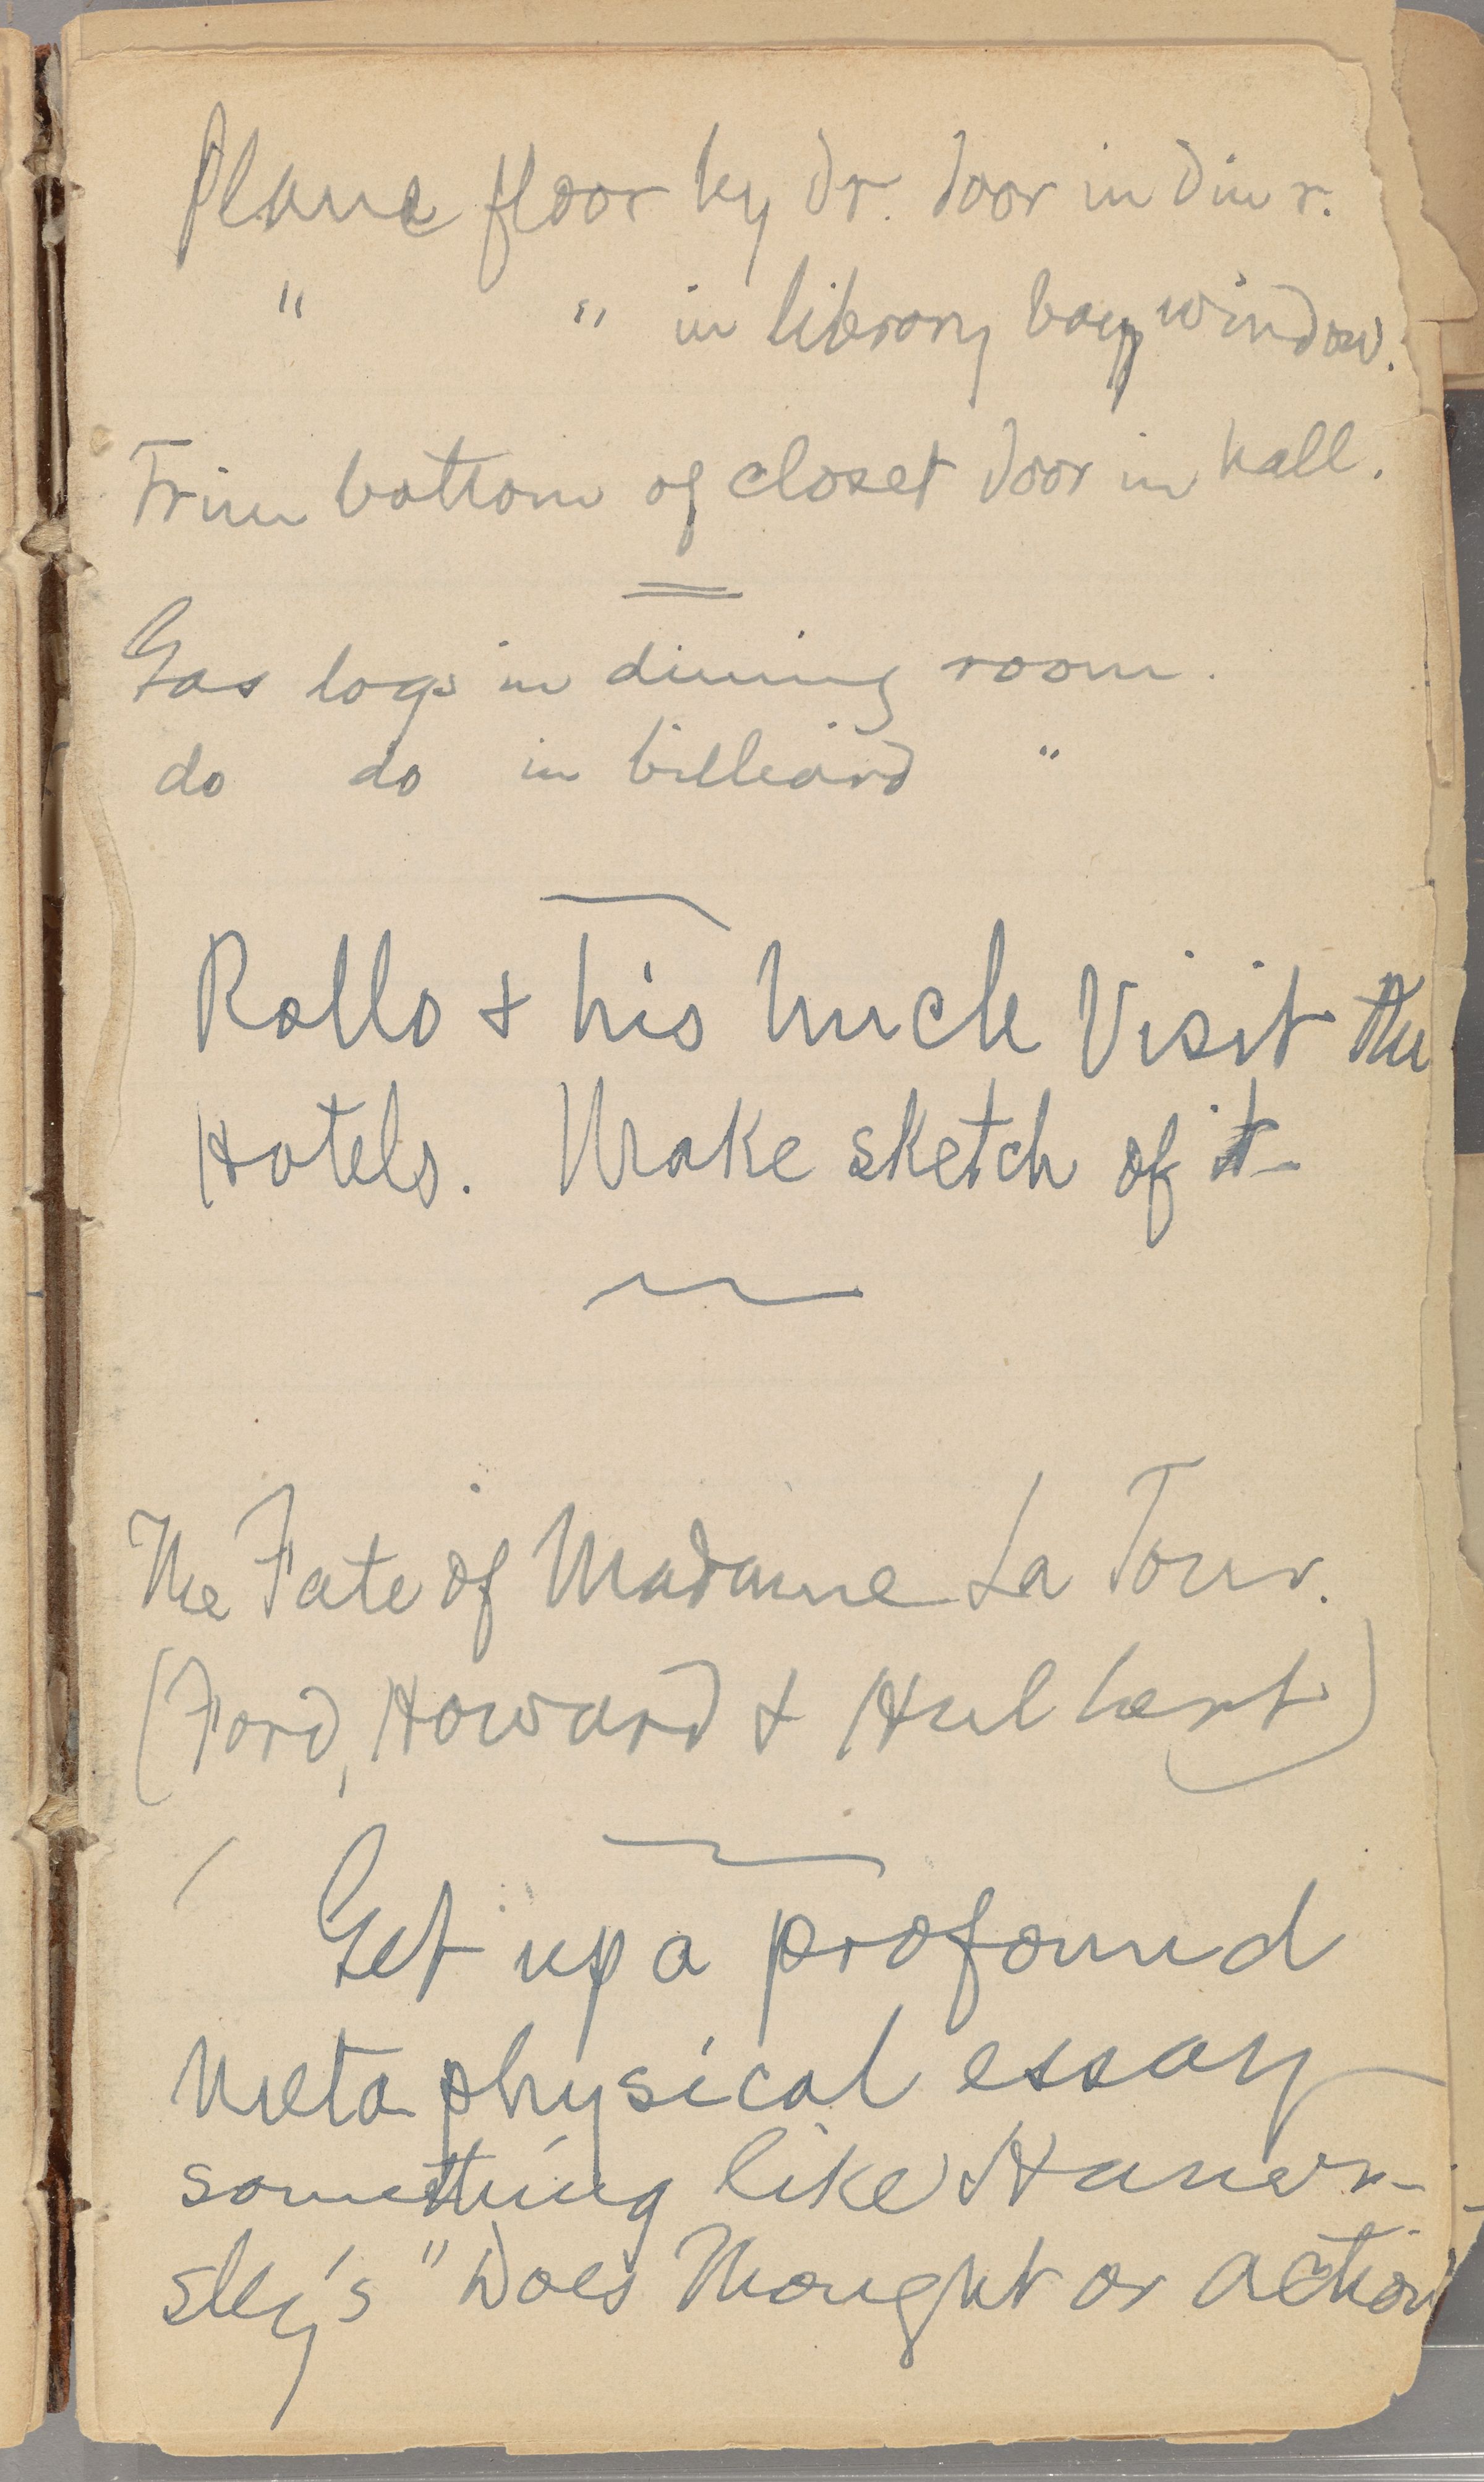 Plane floor by dr. door in din r.
" " in library bay window.
Trim bottom of closet door in hall.
Gas logs in dining room.
do do in billiard "
Rollo & his Uncle Visit the
Hotels. Make sketch of it
The Fate of Madame La Tour.
(Ford, Howard & Hulbert)
Get up a profound
metaphysical essay
something like Hamer-
sley's "Does Thought or action